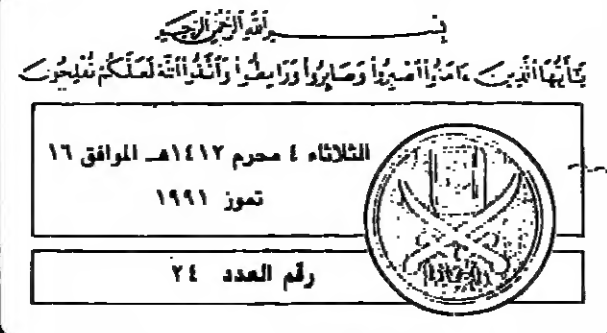 بِسْمِ اللَّهِ الرَّحْمَٰنِ الرَّحِيمِ
يَٰٓأَيُّهَا ٱلَّذِينَ ءَامَنُوا۟ ٱصْبِرُوا۟ وَصَابِرُوا۟ وَرَابِطُوا۟ وَٱتَّقُوا۟ ٱللَّهَ لَعَلَّكُمْ تُفْلِحُونَ
الثلاثاء ٤ محرم ١٤١٢هـ الموافق ١٦
تموز ١٩٩١
رقم العدد ٢٤